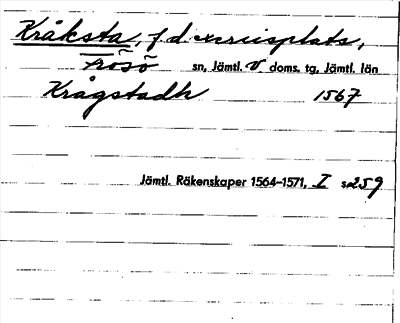 Kråksta, f.d. exercisplats,
Frösö sn, Jämtl. V doms. tg, Jämtl. län
Krågstadh 1567
Jämtl. Räkenskaper 1564–1571, I s. 259